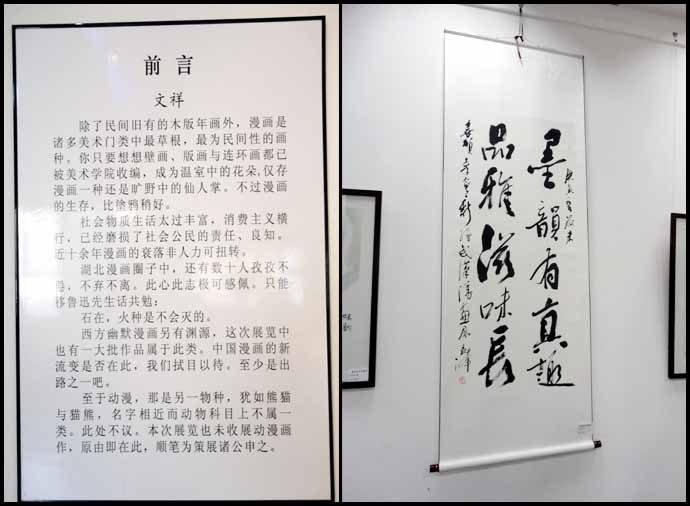 前言
文祥
除了民间旧有的木版年画外，漫画是
诸多美术门类中最草根，最为民间性的画
种。你只要想想壁画、版画与连环画都已
被美术学院收编，成为温室中的花朵,仅存
漫画一种还是旷野中的仙人掌。不过漫画
的生存，比塗鸦稍好。
社会物质生活太过丰富，消费主义横
行，已经磨损了社会公民的责任、良知。
近十余年漫画的衰落非人力可扭转。
湖北漫画圈子中，还有数十人孜孜不
倦，不弃不离。此心此志极可感佩。只能
移鲁迅先生话共勉：
石在，火种是不会灭的。
西方幽默漫画另有渊源，这次展览中
也有一大批作品属于此类。中国漫画的新
流变是否在此，我们拭目以待。至少是出
路之一吧。
至于动漫，那是另一物种，犹如熊猫
与猫熊，名字相近而动物科目上不属一
类。此处不议。本次展览也未收展动漫画
作，原由即在此，顺笔为策展诸公申之。
墨韻有真趣
品雅滋味長